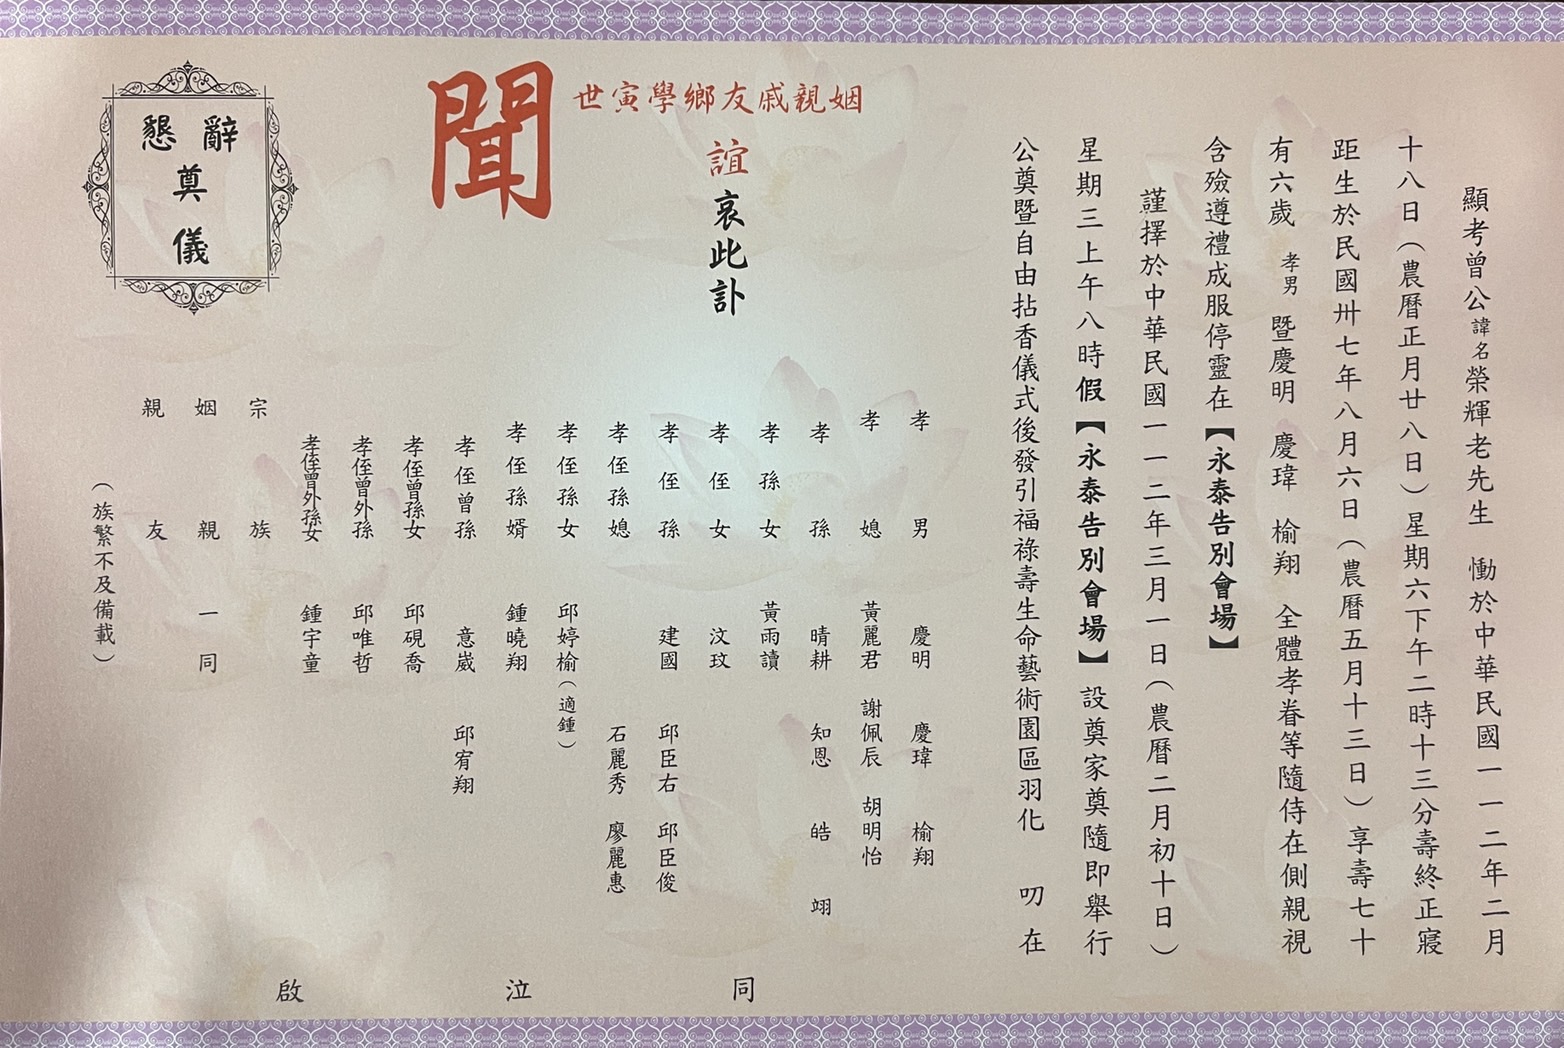 顯考曾公諱名榮輝老先生　慟於中華民國一一二年二月
十八日（農曆正月廿八日）星期六下午二時十三分壽終正寢
距生於民國卅七年八月六日（農曆五月十三日）享壽七十
有六歲　孝男　暨慶明　慶瑋　榆翔　全體孝眷等隨侍在側親視
含殮遵禮成服停靈在【永泰告別會場】
謹擇於中華民國一一二年三月一日（農曆二月初十日）
星期三上午八時假【永泰告別會場】設奠家奠隨即舉行
公奠暨自由拈香儀式後發引福祿壽生命藝術園區羽化　叨在
姻親戚友鄉學寅世
誼哀此訃
聞
孝男　慶明　慶瑋　榆翔
孝媳　黃麗君　謝佩辰　胡明怡
孝孫　晴耕　知恩　皓　翊
孝孫女　黃雨讀
孝侄女　汶玟
孝侄孫　建國　邱臣右　邱臣俊
孝侄孫媳　石麗秀　廖麗惠
孝侄孫女　邱婷榆（適鍾）
孝侄孫婿　鍾曉翔
孝侄曾孫　意崴　邱宥翔
孝侄曾孫女　邱硯喬
孝侄曾外孫　邱唯哲
孝侄曾外孫女　鍾宇童
宗族
姻親一同
親友
（族繁不及備載）
同泣啟
懇辭
奠
儀